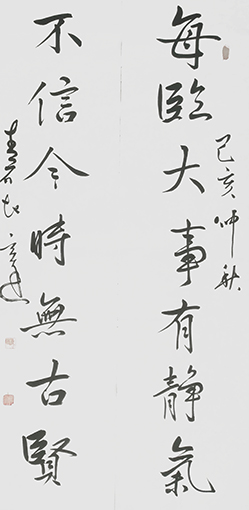 每臨大事有静氣
己亥仲秋
不信今時無古賢